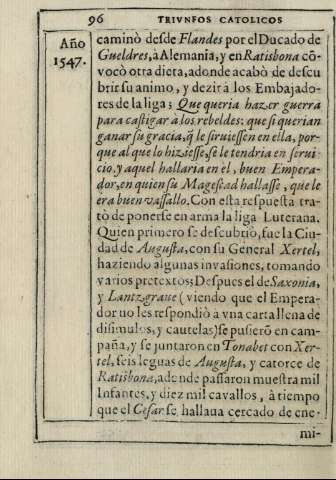 96 TRIVNFOS CATOLICOS
Año
1547.
caminò desde Flandes por el Ducado de
Gueldres, à Alemania, y en Ratisbona cõ-
vocò otra dieta, adonde acabò de descu
brir su animo, y dezir à los Embajado-
res de la liga; Que queria hazer guerra
para castigar à los rebeldes: que si querian
ganar su gracia, q̃ le siruiessen en ella, por-
que al que lo hiziesse, se le tendria en serui-
cio. y aquel hallaria en el, buen Empera-
dor, en quien su Magestad hallasse, que le
era buen vassallo. Con esta respuesta tra-
tò de ponerse en arma la liga Luterana.
Quien primero se descubriò, fue la Ciu-
dad de Augusta, con su General Xertel,
haziendo algunas invasiones, tomando
varios pretextos; Despues el de Saxonia,
y Lantzgraue (viendo que el Empera-
dor no les respondiò à vna carta llena de
disimulos, y cautelas) se pusierõ en cam-
paña, y se juntaron en Tonabet con Xer-
tel, seis leguas de Augusta, y catorce de
Ratisbona, adonde passaron muestra mil
Infantes, y diez mil cavallos, à tiempo
que el Cesar se hallaua cercado de ene-
mi-